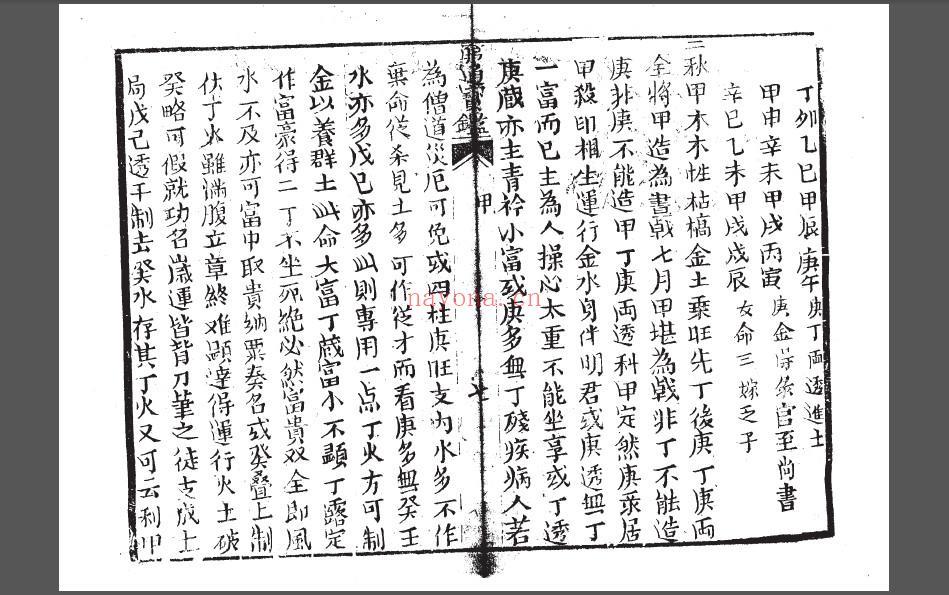 丁卯乙巳甲辰庚午庚丁両透進士
甲申辛未甲戌丙寅庚金得祿官至尚書
辛巳乙未甲戌戊辰女命三嫁乏子
三秋甲木木性枯槁金土乗旺先丁後庚丁庚両
全将甲造為畫戟七月甲堪為戟非丁不能造
庚非庚不能造甲丁庚両透科甲定然庚祿居
甲殺印相生運行金水身伴明君或庚透無丁
一富而已主為人操心太重不能坐享或丁透
庚蔵亦主青衿小富或庚多無丁殘疾病人若
通寶鑑
甲
七
為僧道災厄可免或四柱庚旺支内水多不作
棄命従杀見土多可作従才而看庚多無癸壬
水亦多戊己亦多此則專用一点丁火方可制
金以養群土此命大富丁蔵富小不顕丁露定
作富豪得二丁不坐死絶必然富貴双全即風
水不及亦可富中取貴納粟奏名或癸叠上制
伏丁火雖滿腹立章終难顕達得運行火土破
癸略可假就功名歳運皆背刀筆之徒支成土
局戊己透干制去癸水存其丁火又可云利甲
nayona.cn